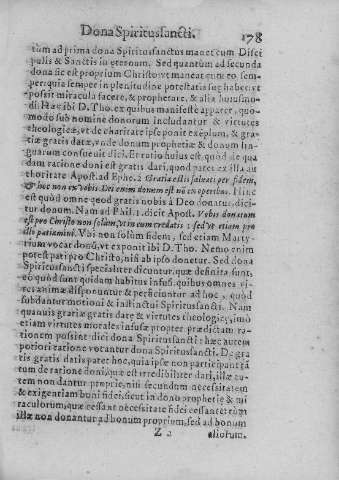 Dona Spiritus sancti. 178
tùm ad prima dona Spiritus sanctus manet cum Disci
pulis & Sanctis in æternum. Sed quantùm ad secunda
dona sic est proprium Christo: vt maneat cum eo sem-
per: quia semper in plenitudine potestatis sue habet, vt
possit miracula facere, & prophetare, & alia huiusmo-
di. Hæc ibi D. Tho. ex quibus manifestè apparet, quo-
modo sub nomine donorum includantur & virtutes
theologicæ, vt de charitate ipse ponit exẽplum, & gra-
tiæ gratis datæ, vnde donum prophetiæ & donum lin-
guarum consueuit dici. Et ratio huius est, quod de qua
dam ratione doni est gratis dari, quod patet ex illa au
thoritate Apost. ad Ephe. 2. Gratia estis saluati per fidem,
& hoc non ex vobis. Dei enim donum est nõ ex operibus. Hinc
est quòd omne quod gratis nobis à Deo donatur, dici-
tur donum. Nam ad Phil. 1. dicit Apost. Vobis donatum
est pro Christo non solùm, vt in eum credatis: sed vt etiam pro
illo patiamini. Vbi non solùm fidem, sed etiam Marty-
rium vocat donũ, vt exponit ibi D. Tho. Nemo enim
potest pati pro Christo, nisi ab ipso donetur. Sed dona
Spiritus sancti specialiter dicuntur, quæ definita sunt,
eò quòd sunt quidam habitus infusi, quibus omnes vi-
res animæ disponuntur & perficiuntur ad hoc, quod
subdantur motioni & instinctui Spiritus sancti. Nam
quamuis gratiæ gratis datæ & virtutes theologicæ, imò
etiam virtutes morales infusæ propter prædictam ra-
tionem possint dici dona Spiritus sancti: hæc autem
potiori ratione vocantur dona Spiritus sancti. De gra
tijs gratis datis patet hoc, quia ipsæ non participant tã
tum de ratione doni, quæ est irredibiliter dari, illæ au-
tem non dantur propriè, nisi secundum necessitatem
& exigentiam boni fidei, sicut in dono prophetiæ & mi
raculorum, quæ cessant necessitate fidei cessante: tùm
illæ non donantur ad bonum proprium, sed ad bonum
Z 2 aliorum.